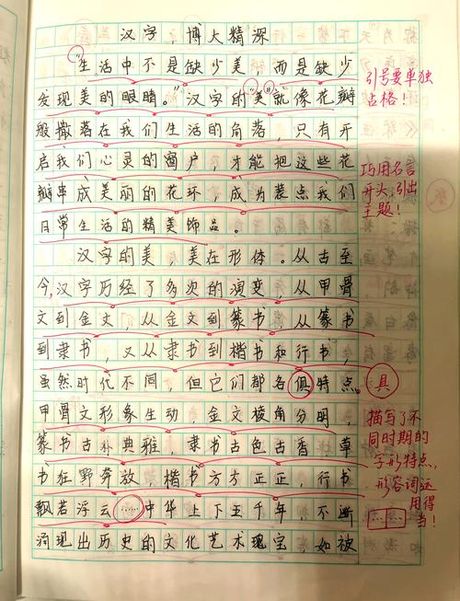 汉字，博大精深
“生活中不是缺少美，而是缺少
发现美的眼睛。”汉字的“美”就像花瓣
般撒落在我们生活的角落，只有开
启我们心灵的窗户，才能把这些花
瓣串成美丽的花环，成为装点我们
日常生活的精美饰品。
汉字的美，美在形体。从古至
今，汉字历经了多次的演变，从甲骨
文到金文，从金文到篆书，从篆书
到隶书，又从隶书到楷书和行书，
虽然时代不同，但它们都各俱特点。
甲骨文形象生动，金文棱角分明，
篆书古朴典雅，隶书古色古香，草
书狂野奔放，楷书方方正正，行书
飘若浮云……中华上下五千年，不断
涌现出历史的文化艺术瑰宝，如被
引号要单独
占格！
巧用名言
开头，引出
主题！
具
描写了不
同时期的
字形特点，
形容词运
用得
当！
……